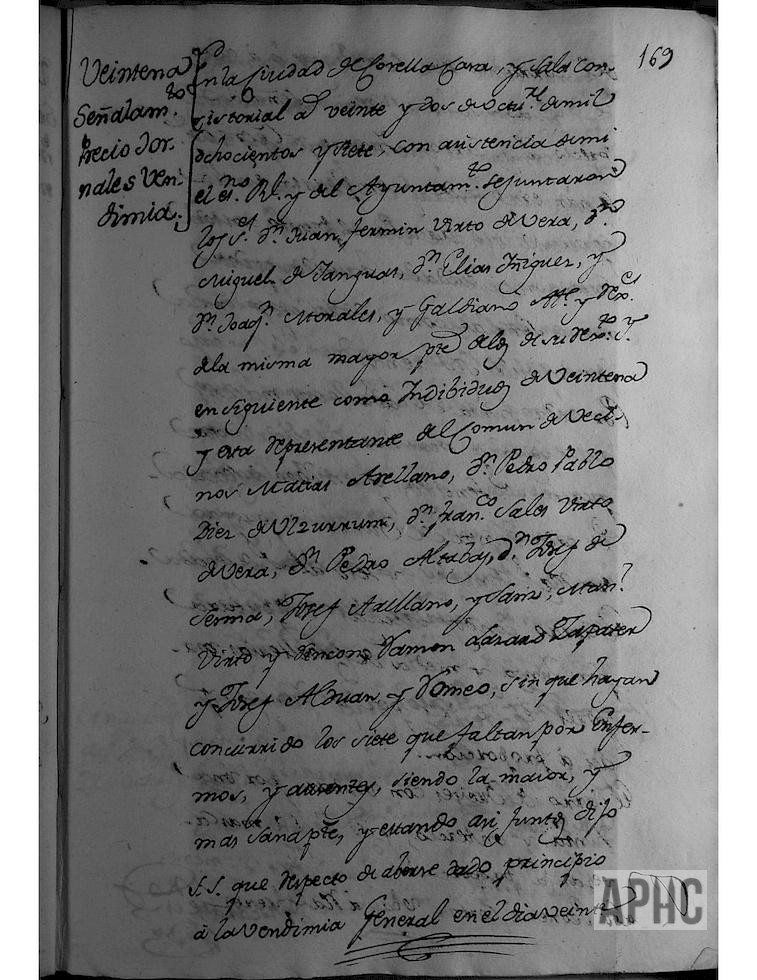 169
Veintena
Señalam.to
Precio Jor-
nales Ven-
dimia.
En la Ciudad de Corella Casa, y Sala Con-
sistorial a veinte y dos de Octu.re de mil
ochocientos y siete, con asistencia de mi
el es.no R.l y del Ayuntam.to se juntaron
los S.es D.n Juan fermin Virto de Vera, D.n
Miguel de Sanguas, D.n Elias Iñiguez, y
D.n Joaq.n Morales, y Galdiano Al.e y Rex.es
de la misma mayor p.te de los de su Rex.to y
en siguiente como Indibiduos de Veintena
y esta Representante del Comun de Veci-
nos Matias Arellano, D.n Pedro Pablo
Diez de Ulzurrum, D.n Fran.co Sales Virto
de Vera, D.n Pedro Altabas, D.n Josef de
Serma, Josef Arellano, y Sanz, Man.l
Virto y Rincon, Ramon Lazaro Zapater
y Josef Alduan y Romeo, sin que hayan
concurrido los siete que faltan por Enfer-
mos, y ausentes, siendo la maior, y
mas sana p.te, y estando asi Juntos dijo
S.S. que respecto de aberse dado principio
a la Vendimia General en el dia veinte
APHC